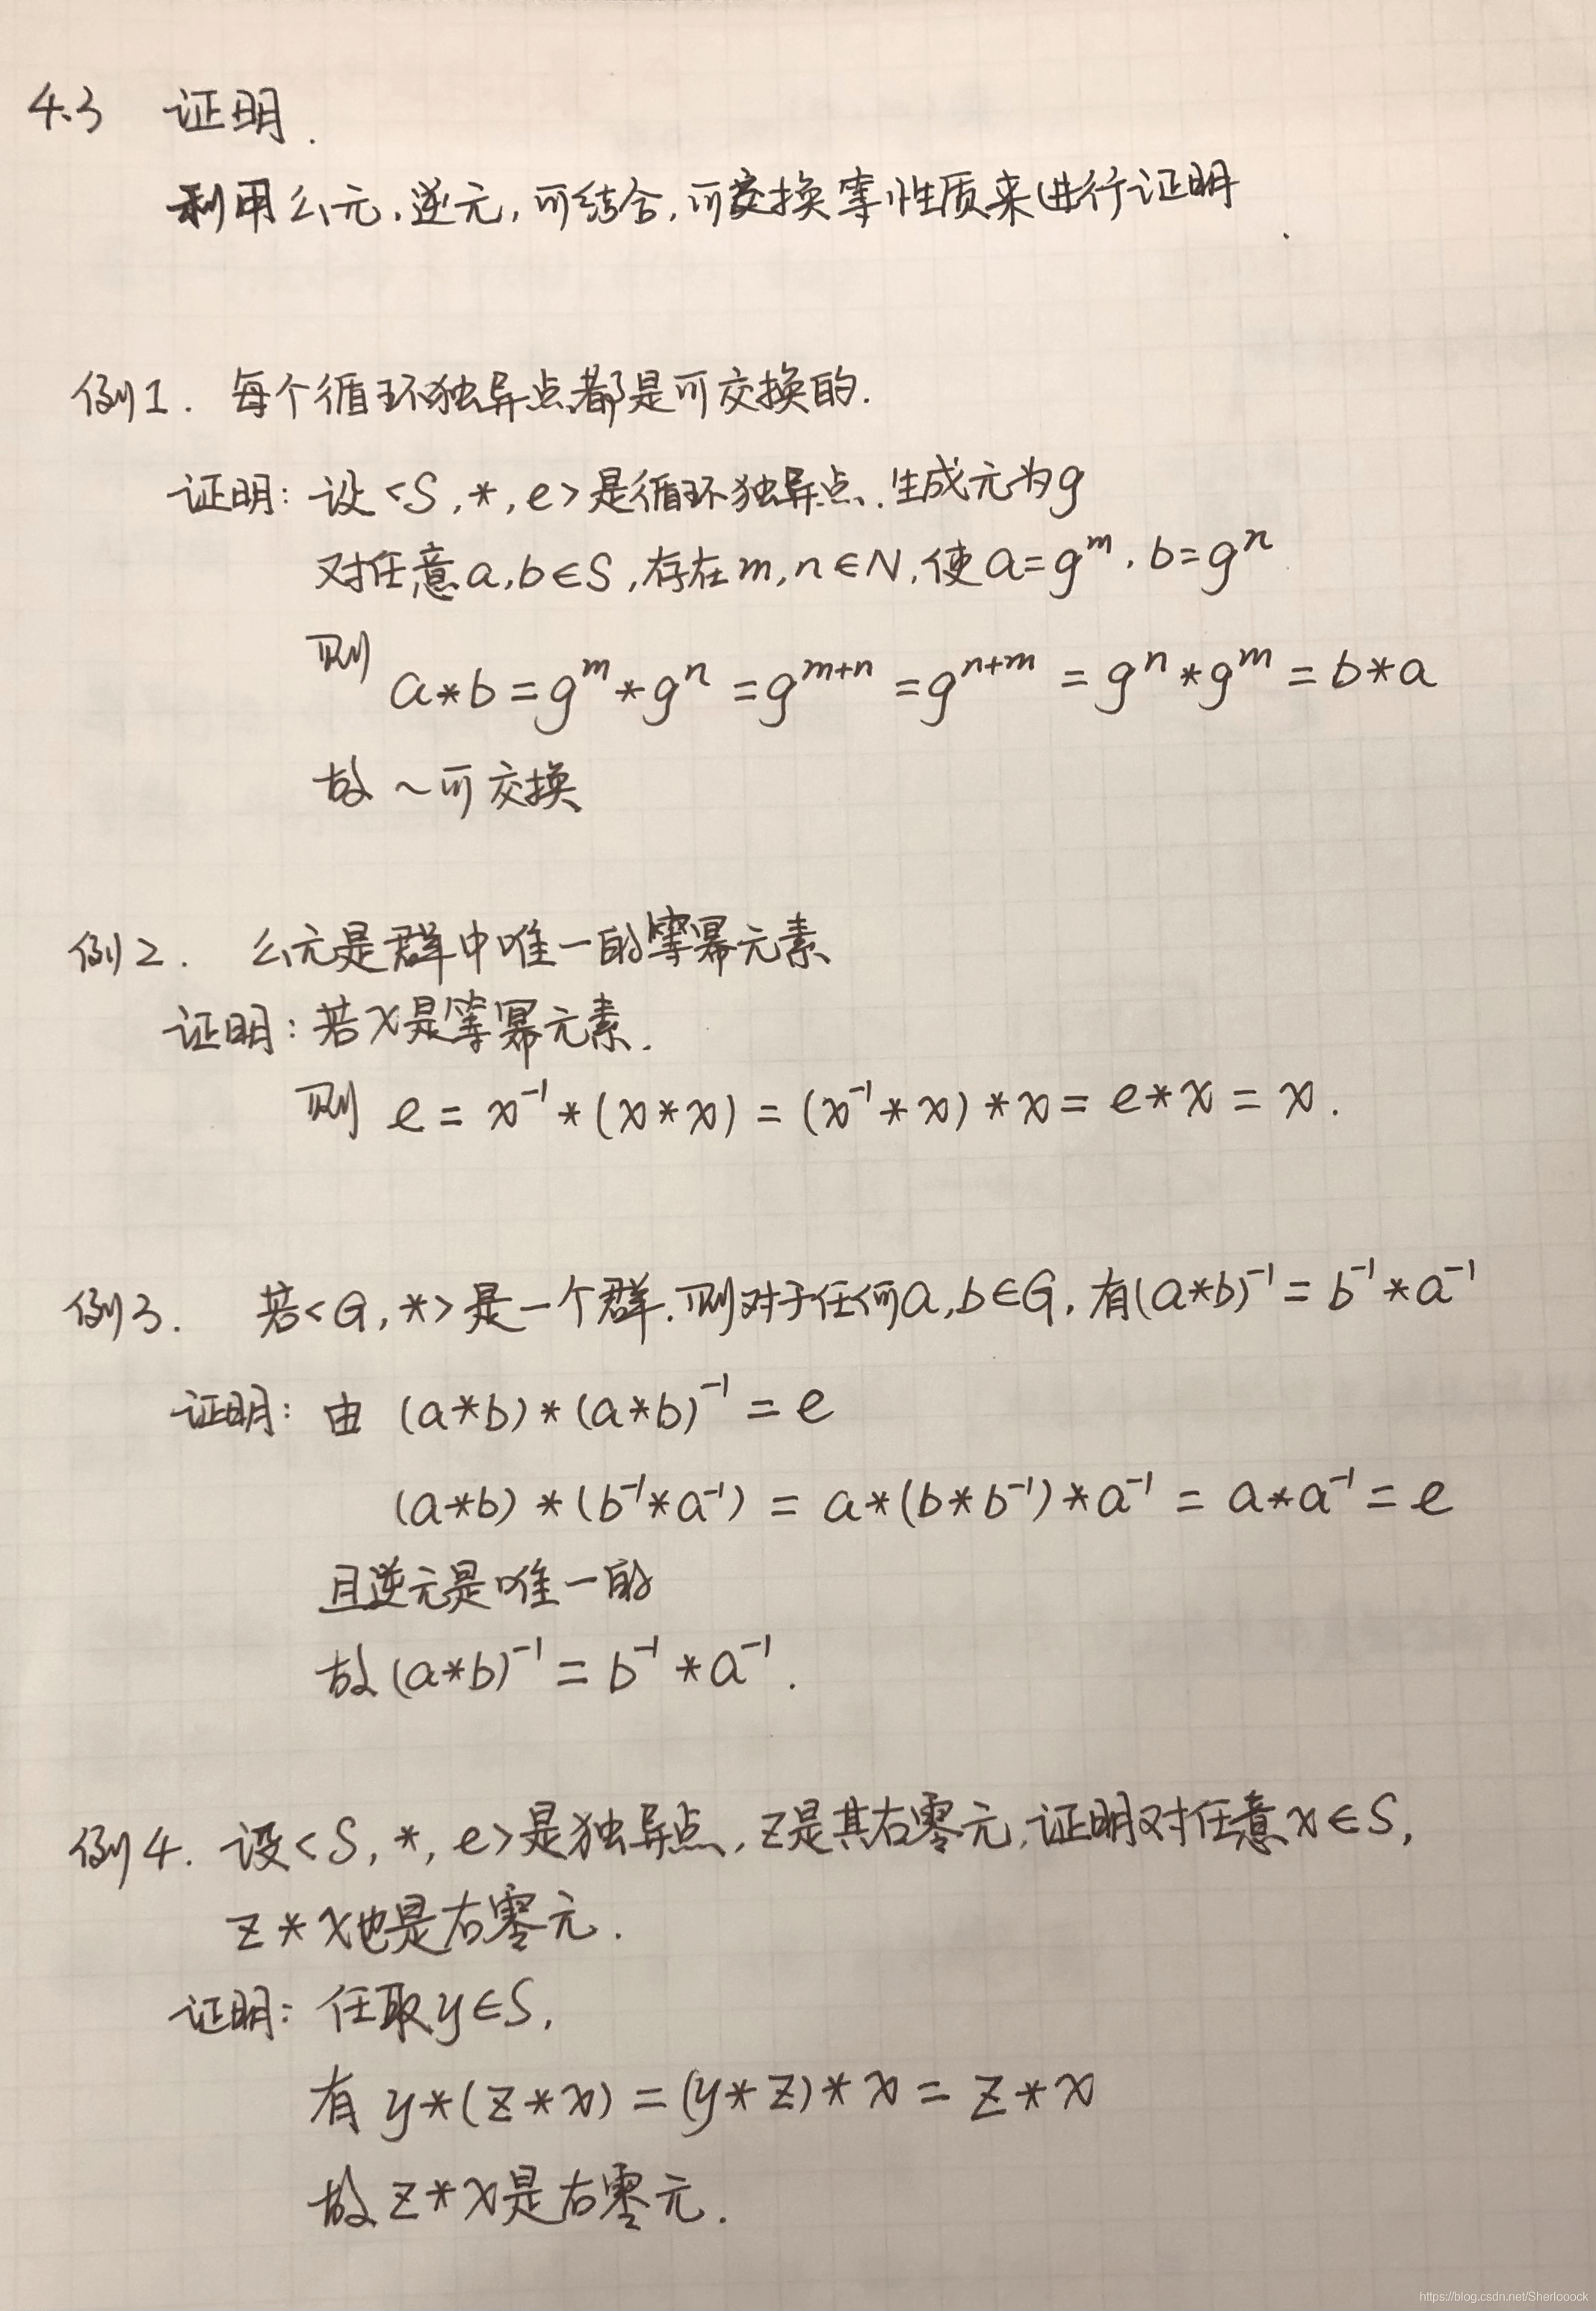 4.3 证明.
利用幺元,逆元,可结合,可交换等性质来进行证明.
例1. 每个循环独异点都是可交换的.
证明: 设<S,*,e>是循环独异点,生成元为g
对任意a,b∈S,存在m,n∈N,使a=g^m,b=g^n
则 a*b=g^m*g^n=g^{m+n}=g^{n+m}=g^n*g^m=b*a
故~可交换
例2. 幺元是群中唯一的等幂元素
证明:若x是等幂元素.
则 e=x^{-1}*(x*x)=(x^{-1}*x)*x=e*x=x.
例3. 若<G,*>是一个群.则对于任何a,b∈G,有(a*b)^{-1}=b^{-1}*a^{-1}
证明:由 (a*b)*(a*b)^{-1}=e
(a*b)*(b^{-1}*a^{-1})=a*(b*b^{-1})*a^{-1}=a*a^{-1}=e
且逆元是唯一的
故(a*b)^{-1}=b^{-1}*a^{-1}.
例4. 设<S,*,e>是独异点,z是其右零元,证明对任意x∈S,
z*x也是右零元.
证明:任取y∈S,
有 y*(z*x)=(y*z)*x=z*x
故z*x是右零元.
https://blog.csdn.net/Sherlooock